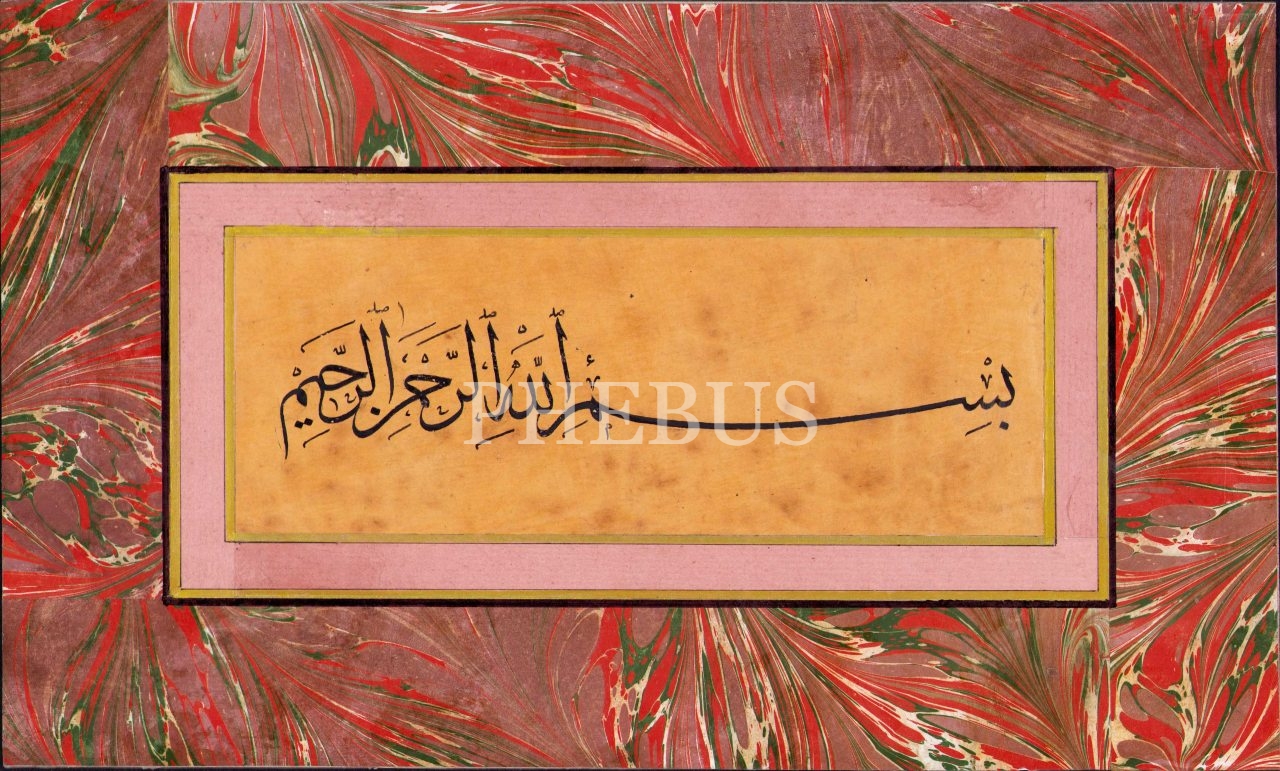 بِسْمِ اللَّهِ الرَّحْمَنِ الرَّحِيمِ
PHEBUS